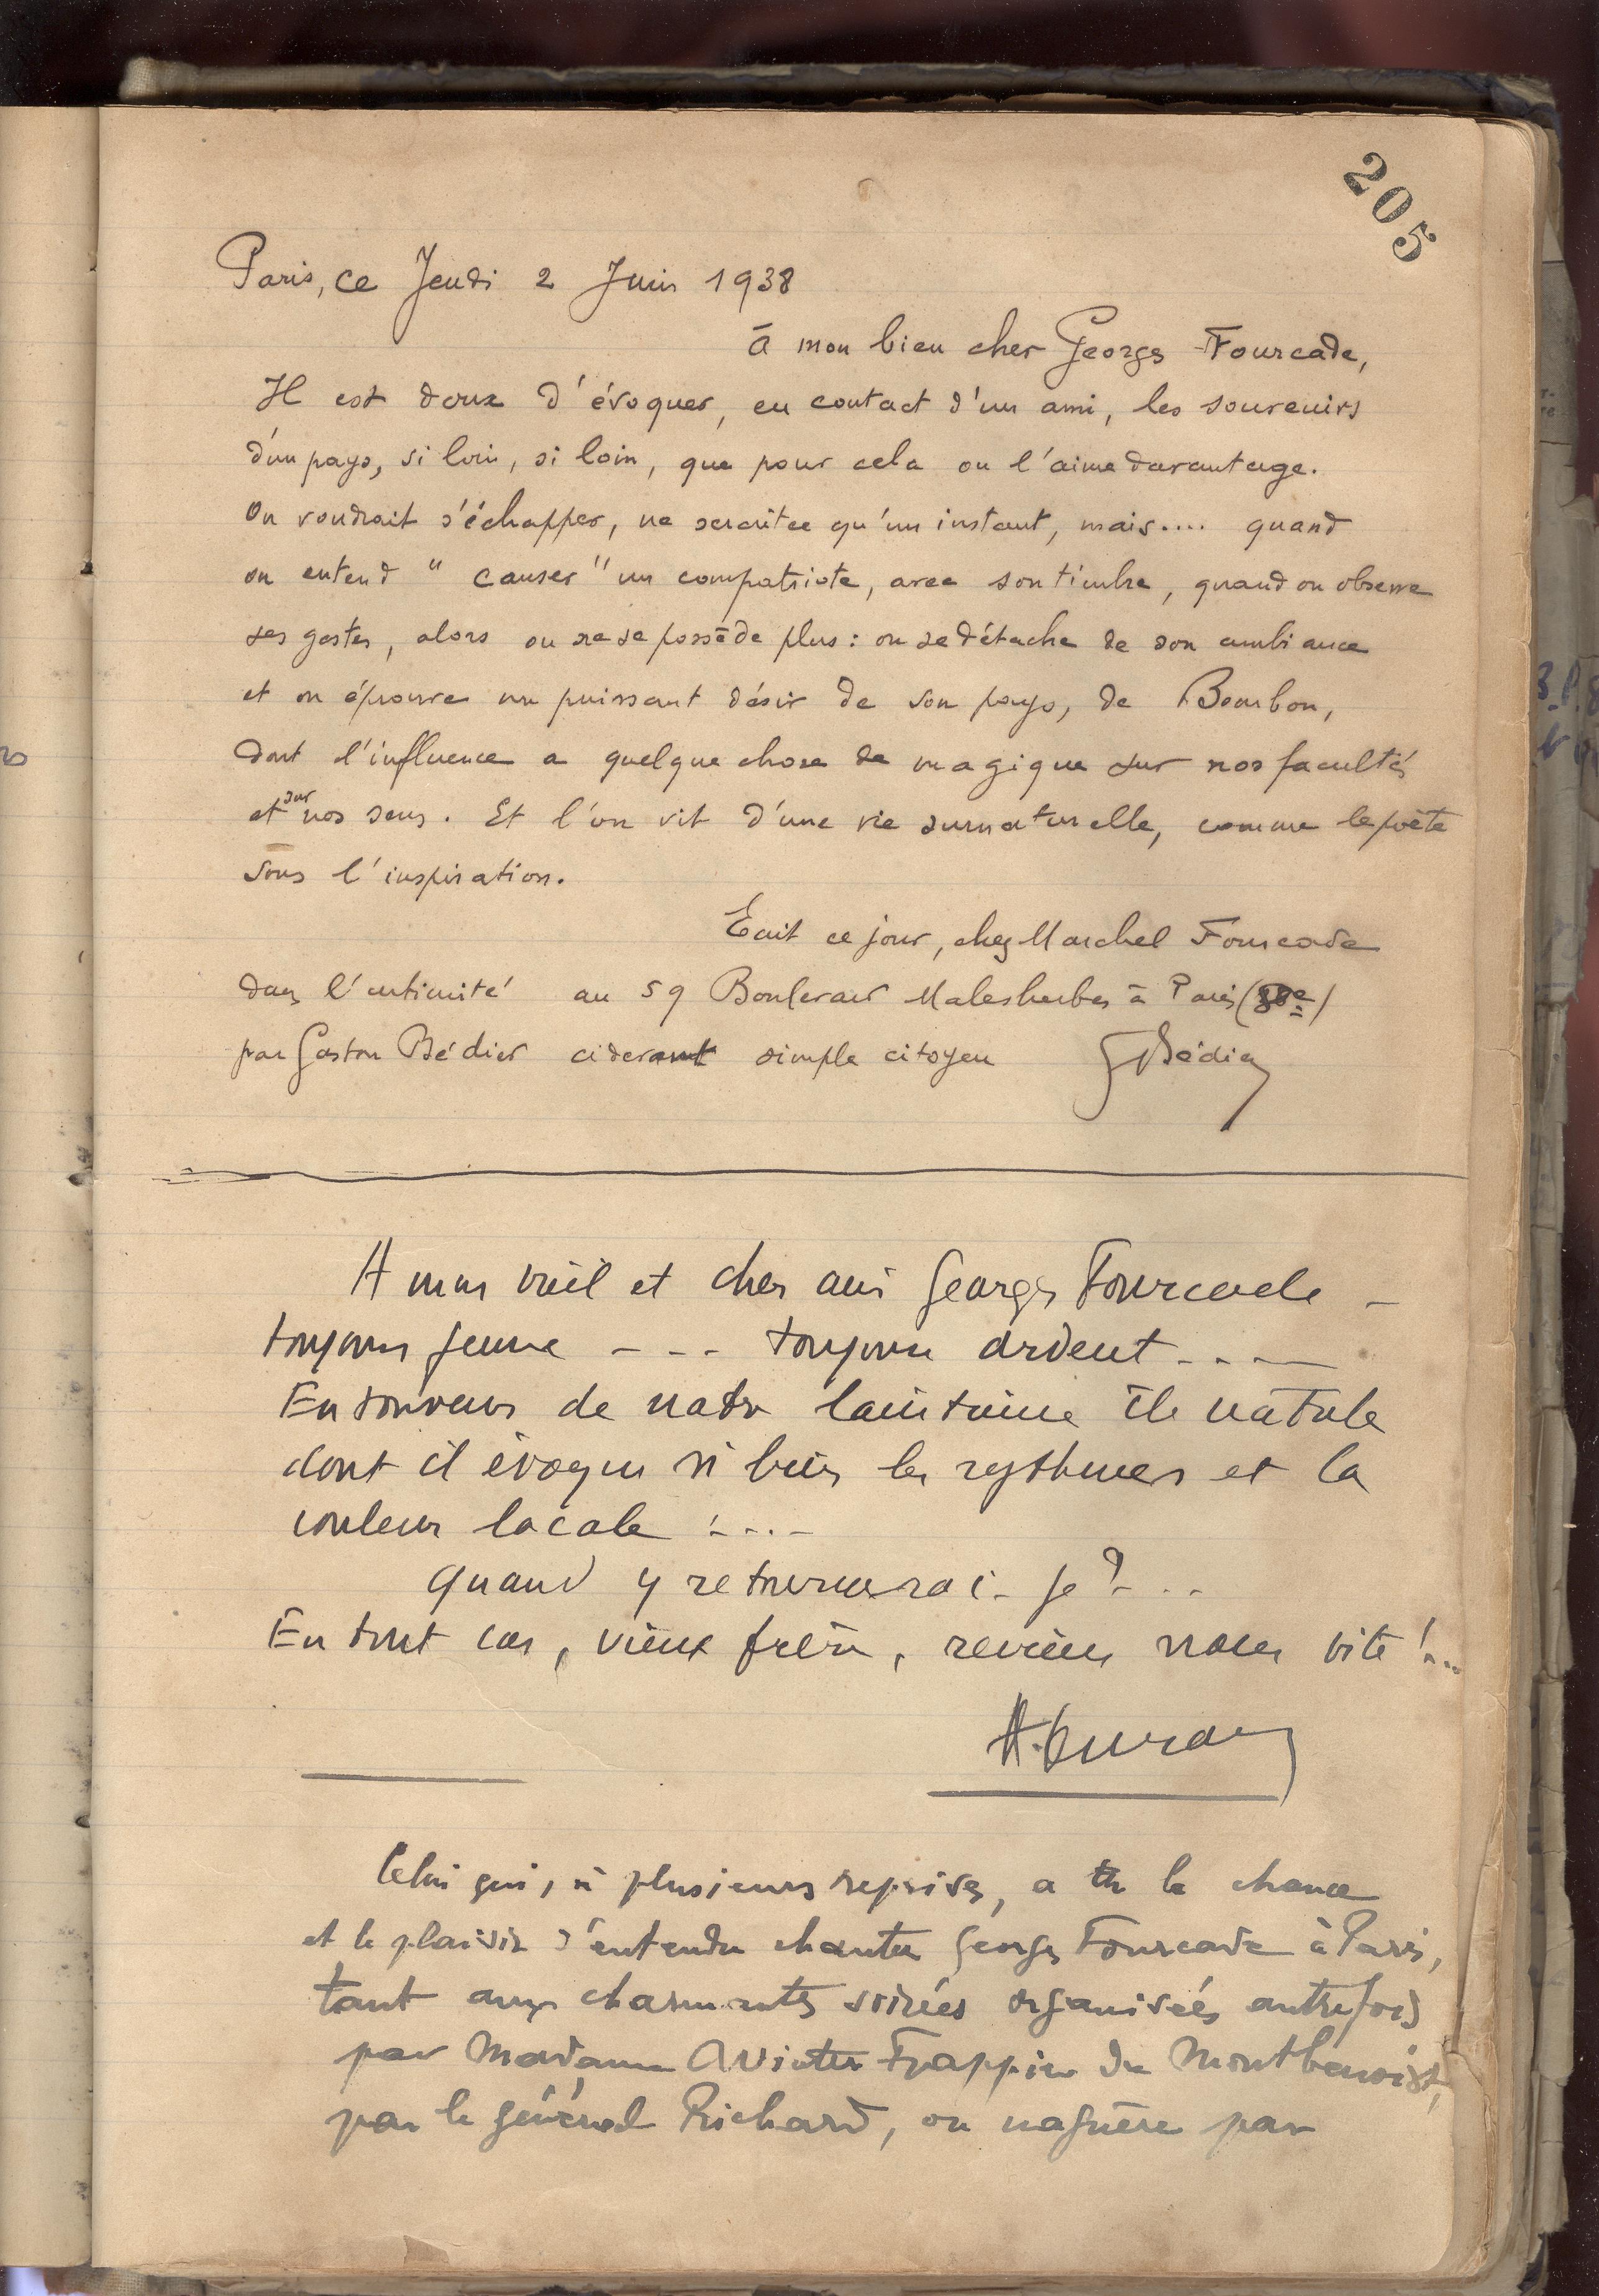 205
Paris, ce Jeudi 2 Juin 1938
à mon bien cher Georges Fourcade,
Il est doux d'évoquer, au contact d'un ami, les souvenirs
d'un pays, si loin, si loin, que pour cela on l'aime davantage.
On voudrait s'échapper, ne serait-ce qu'un instant, mais.... quand
on entend "causer" un compatriote, avec son timbre, quand on observe
ses gestes, alors on ne se possède plus : on se détache de son ambiance
et on éprouve un puissant désir de son pays, de Bourbon,
dont l'influence a quelque chose de magique sur nos facultés
et sur nos sens. Et l'on vit d'une vie surnaturelle, comme le poète
sous l'inspiration.
Ecrit ce jour, chez Marchel Fourcade
dans l'intimité au 59 Boulevard Malesherbes à Paris (8e)
par Gaston Bédier cidevant simple citoyen GBédier
A mon vieil et cher ami Georges Fourcade -
toujours jeune - - - toujours ardent - - - -
En souvenir de notre lointaine île natale
dont il évoque si bien les rythmes et la
couleur locale : - . . -
Quand y retournerai-je ? - . .
En tout cas, vieux frère, reviens nous vite !...
Celui qui, à plusieurs reprises, a eu la chance
et le plaisir d'entendre chanter Georges Fourcade à Paris,
tant aux charmantes soirées organisées autrefois
par Madame Frappier de Montbenoist,
par le général Richard, ou naguère par